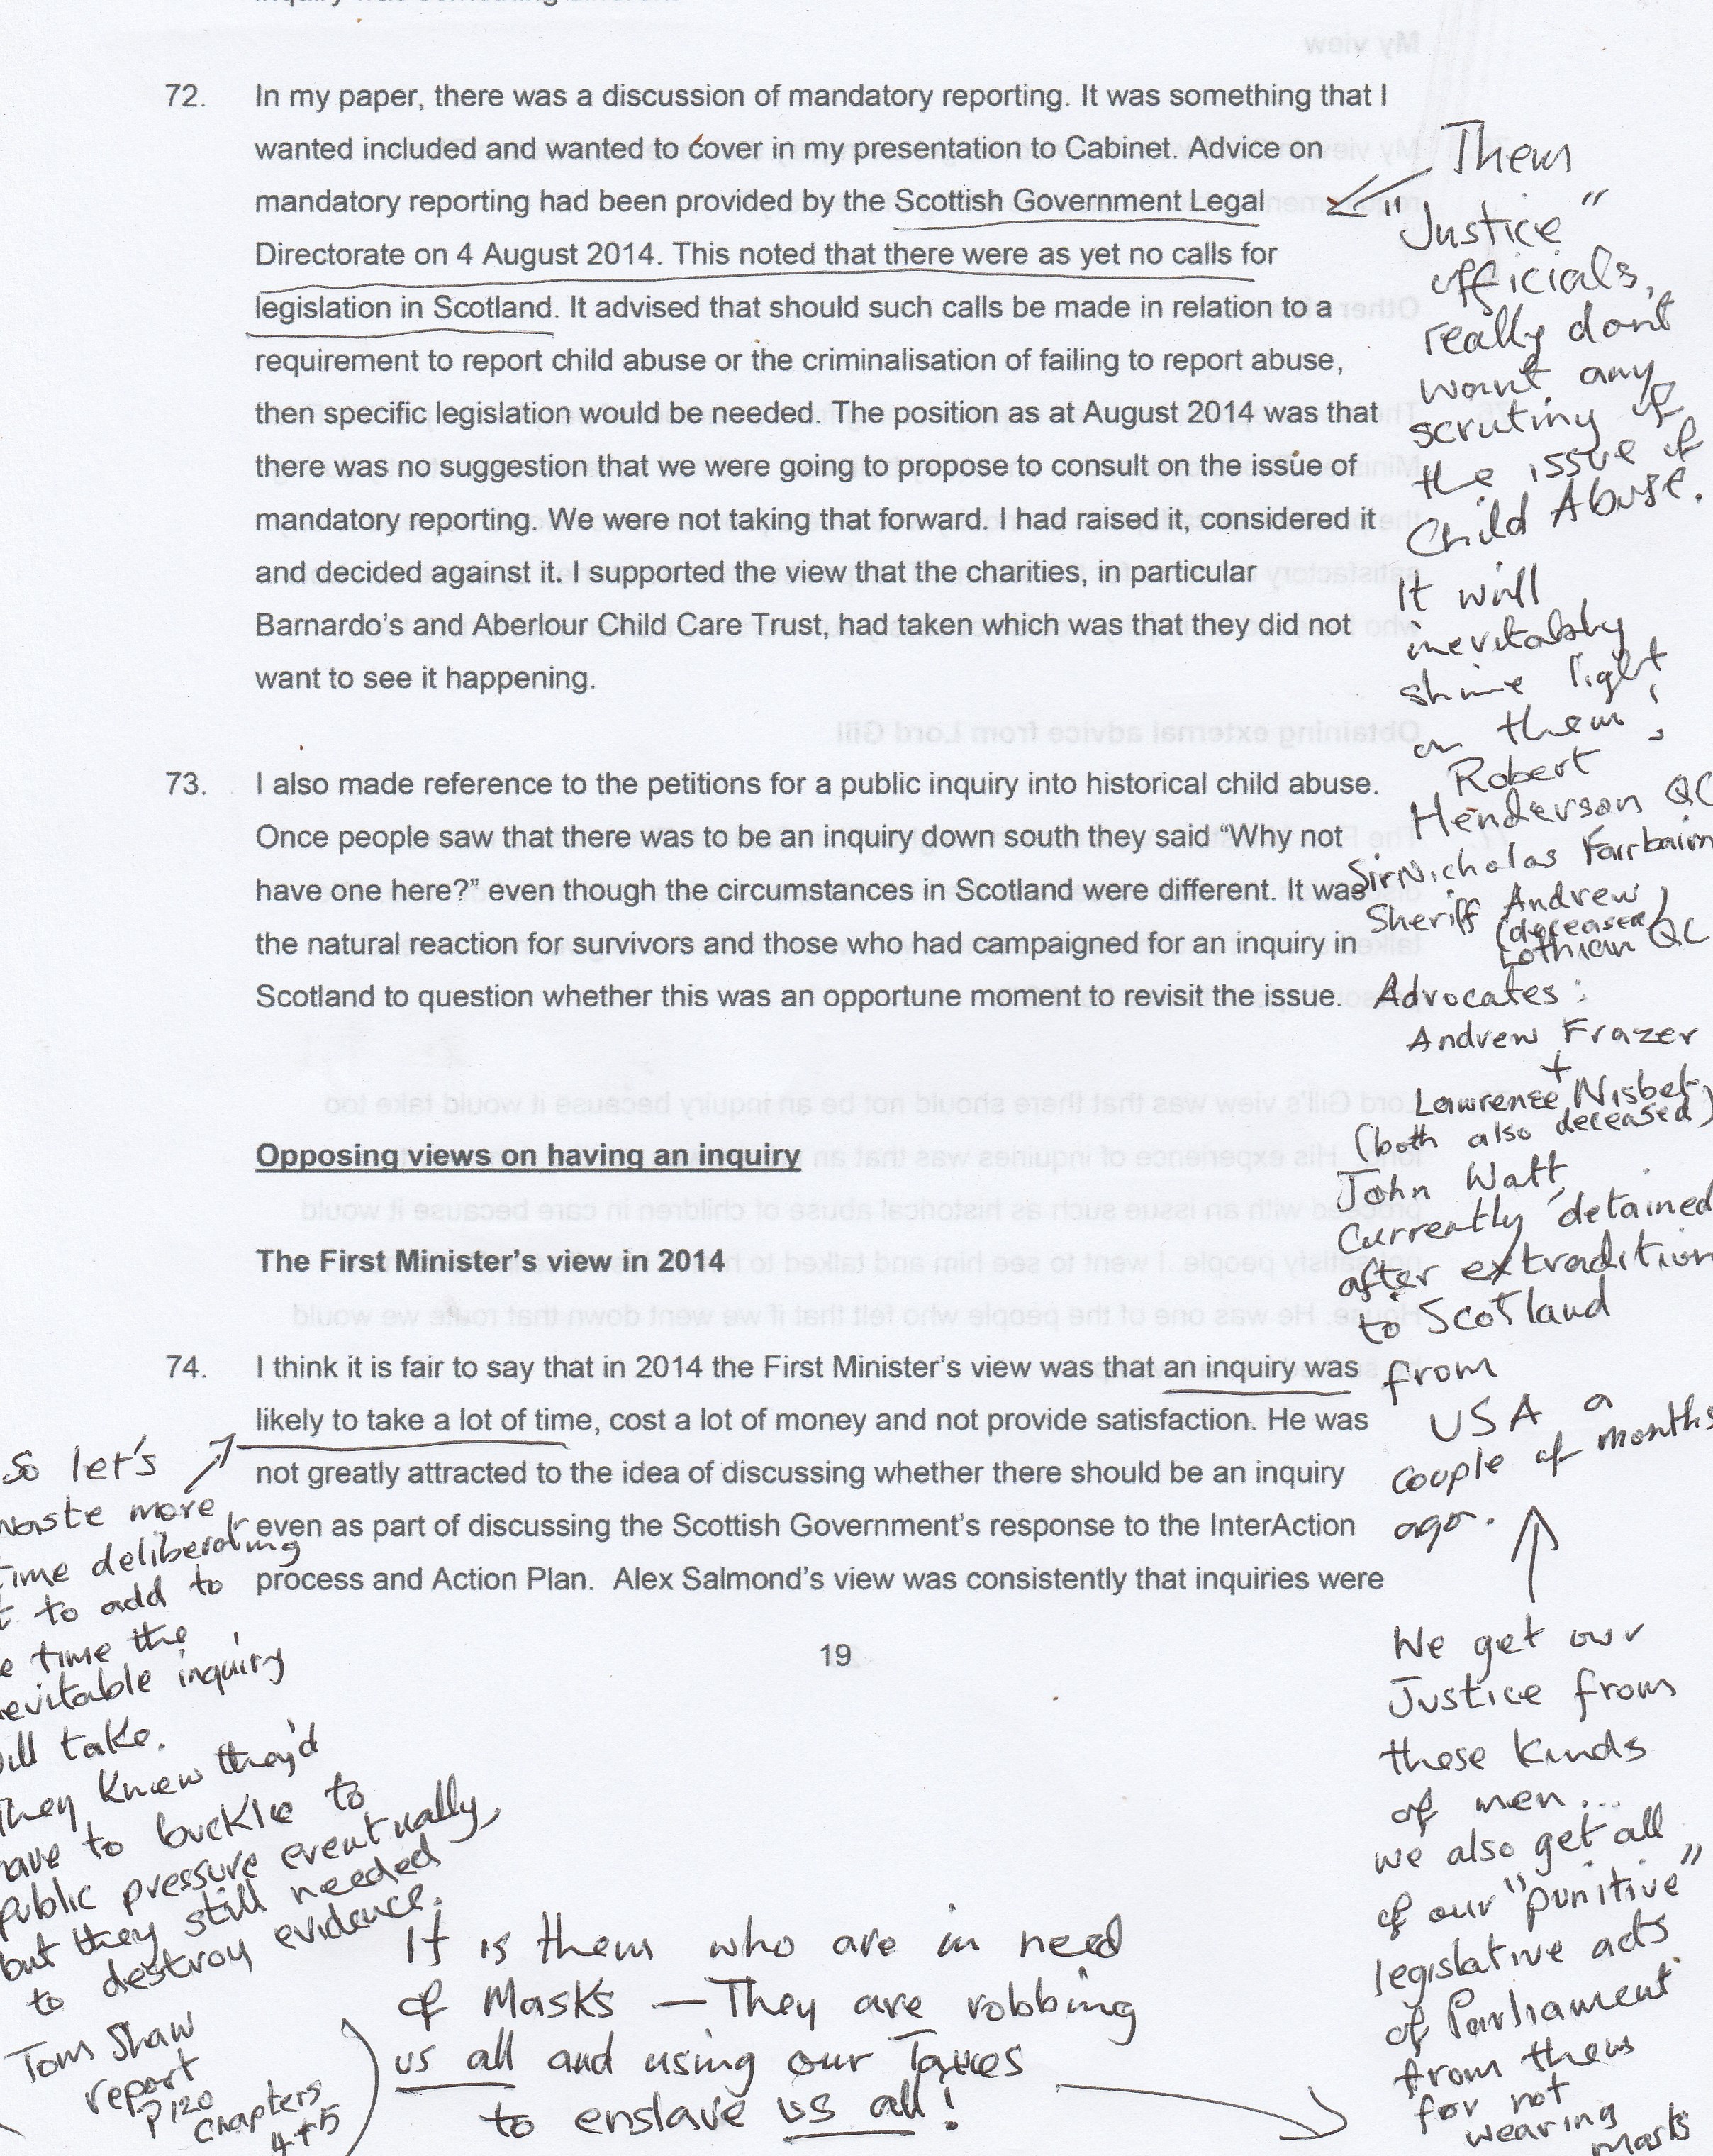 72. In my paper, there was a discussion of mandatory reporting. It was something that I
wanted included and wanted to cover in my presentation to Cabinet. Advice on
mandatory reporting had been provided by the Scottish Government Legal
Directorate on 4 August 2014. This noted that there were as yet no calls for
legislation in Scotland. It advised that should such calls be made in relation to a
requirement to report child abuse or the criminalisation of failing to report abuse,
then specific legislation would be needed. The position as at August 2014 was that
there was no suggestion that we were going to propose to consult on the issue of
mandatory reporting. We were not taking that forward. I had raised it, considered it
and decided against it. I supported the view that the charities, in particular
Barnardo's and Aberlour Child Care Trust, had taken which was that they did not
want to see it happening.
73. I also made reference to the petitions for a public inquiry into historical child abuse.
Once people saw that there was to be an inquiry down south they said “Why not
have one here?” even though the circumstances in Scotland were different. It was
the natural reaction for survivors and those who had campaigned for an inquiry in
Scotland to question whether this was an opportune moment to revisit the issue.
Opposing views on having an inquiry
The First Minister's view in 2014
74. I think it is fair to say that in 2014 the First Minister's view was that an inquiry was
likely to take a lot of time, cost a lot of money and not provide satisfaction. He was
not greatly attracted to the idea of discussing whether there should be an inquiry
even as part of discussing the Scottish Government's response to the InterAction
process and Action Plan. Alex Salmond's view was consistently that inquiries were
19
Them
"Justice"
officials,
really dont
want any
scrutiny of
the issue of
Child Abuse.
It will
inevitably
shine light
on them!
Robert
Henderson QC
Sir Nicholas Fairbairn
Sheriff Andrew
(deceased)
Lothian QC
Advocates:
Andrew Frazer
+
Lawrence Nisbet
(both also deceased)
John Watt
Currently detained
after extradition
to Scotland
from
USA a
couple of months
ago.
We get our
Justice from
these kinds
of men...
we also get all
of our "punitive"
legislative acts
of Parliament
from them
for not
wearing
masks
So let's
waste more
time deliberating
to add to
time the
inevitable inquiry
will take.
They knew they'd
have to buckle to
public pressure eventually
but they still needed
to destroy evidence.
Tom Shaw
report
P120
Chapters
4+5
It is them who are in need
of Masks — They are robbing
us all and using our Taxes
to enslave us all!